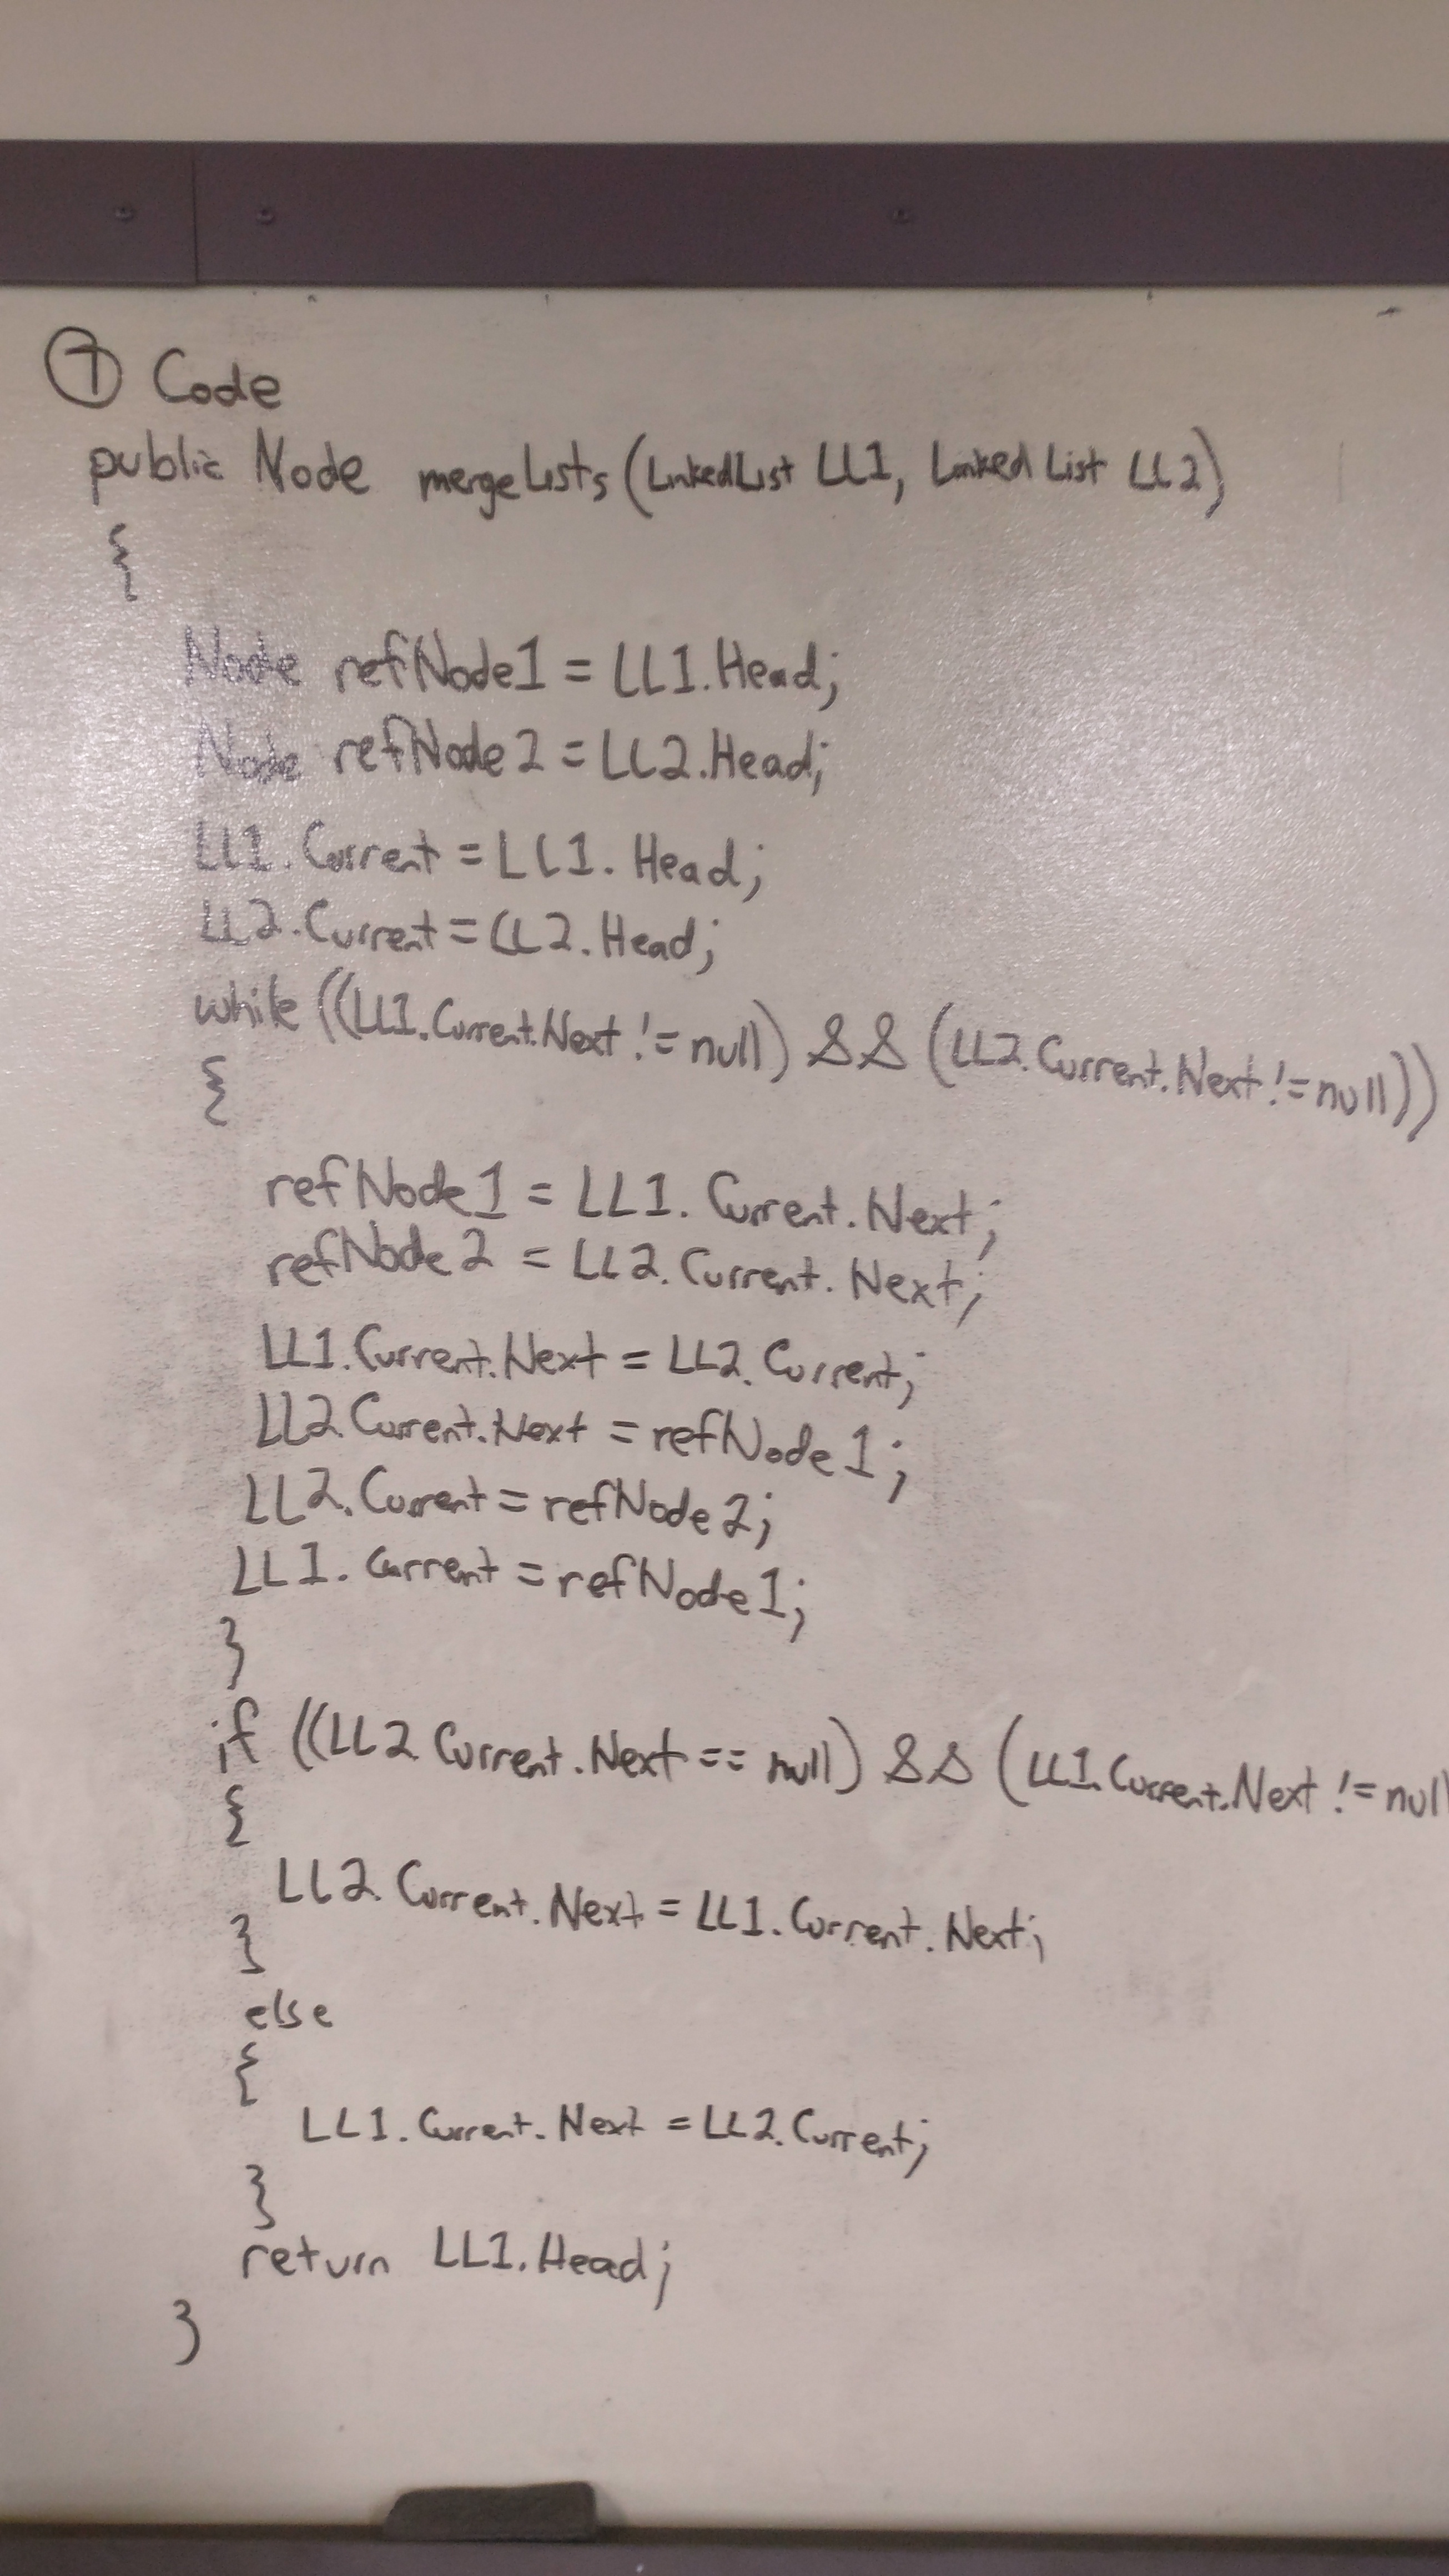 ⑦ Code
public Node mergeLists(LinkedList LL1, Linked List LL2)
{
Node refNode1 = LL1.Head;
Node refNode2 = LL2.Head;
LL1.Current = LL1.Head;
LL2.Current = LL2.Head;
while ((LL1.Current.Next != null) && (LL2.Current.Next != null))
{
refNode1 = LL1.Current.Next;
refNode2 = LL2.Current.Next;
LL1.Current.Next = LL2.Current;
LL2.Current.Next = refNode1;
LL2.Current = refNode2;
LL1.Current = refNode1;
}
if ((LL2.Current.Next == null) && (LL1.Current.Next != null
{
LL2.Current.Next = LL1.Current.Next;
}
else
{
LL1.Current.Next = LL2.Current;
}
return LL1.Head;
}